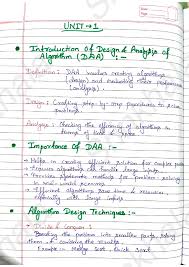 UNIT → 1
• Introduction Of Design & Analysis of
Algorithm (DAA) :-
Definition : DAA involves creating algorithms
(design) and evaluating their performance
(analysis).
Design : Creating step-by-step procedures to solve
Analysis : Checking the efficiency of algorithms in
terms of time & space
• Importance Of DAA :-
→ Helps in creating efficient solution for complex
→ Ensures algorithms can handle large inputs
→ Provides systematic methods for problem solving
in real-world scenarios
→ Efficient algorithms save time & resources
especially with large inputs
• Algorithm Design Techniques :-
Divide & Conquer :
Breaking the problem into smaller parts, solving
them & combining the results.
Example :- Merge Sort, Quick Sort